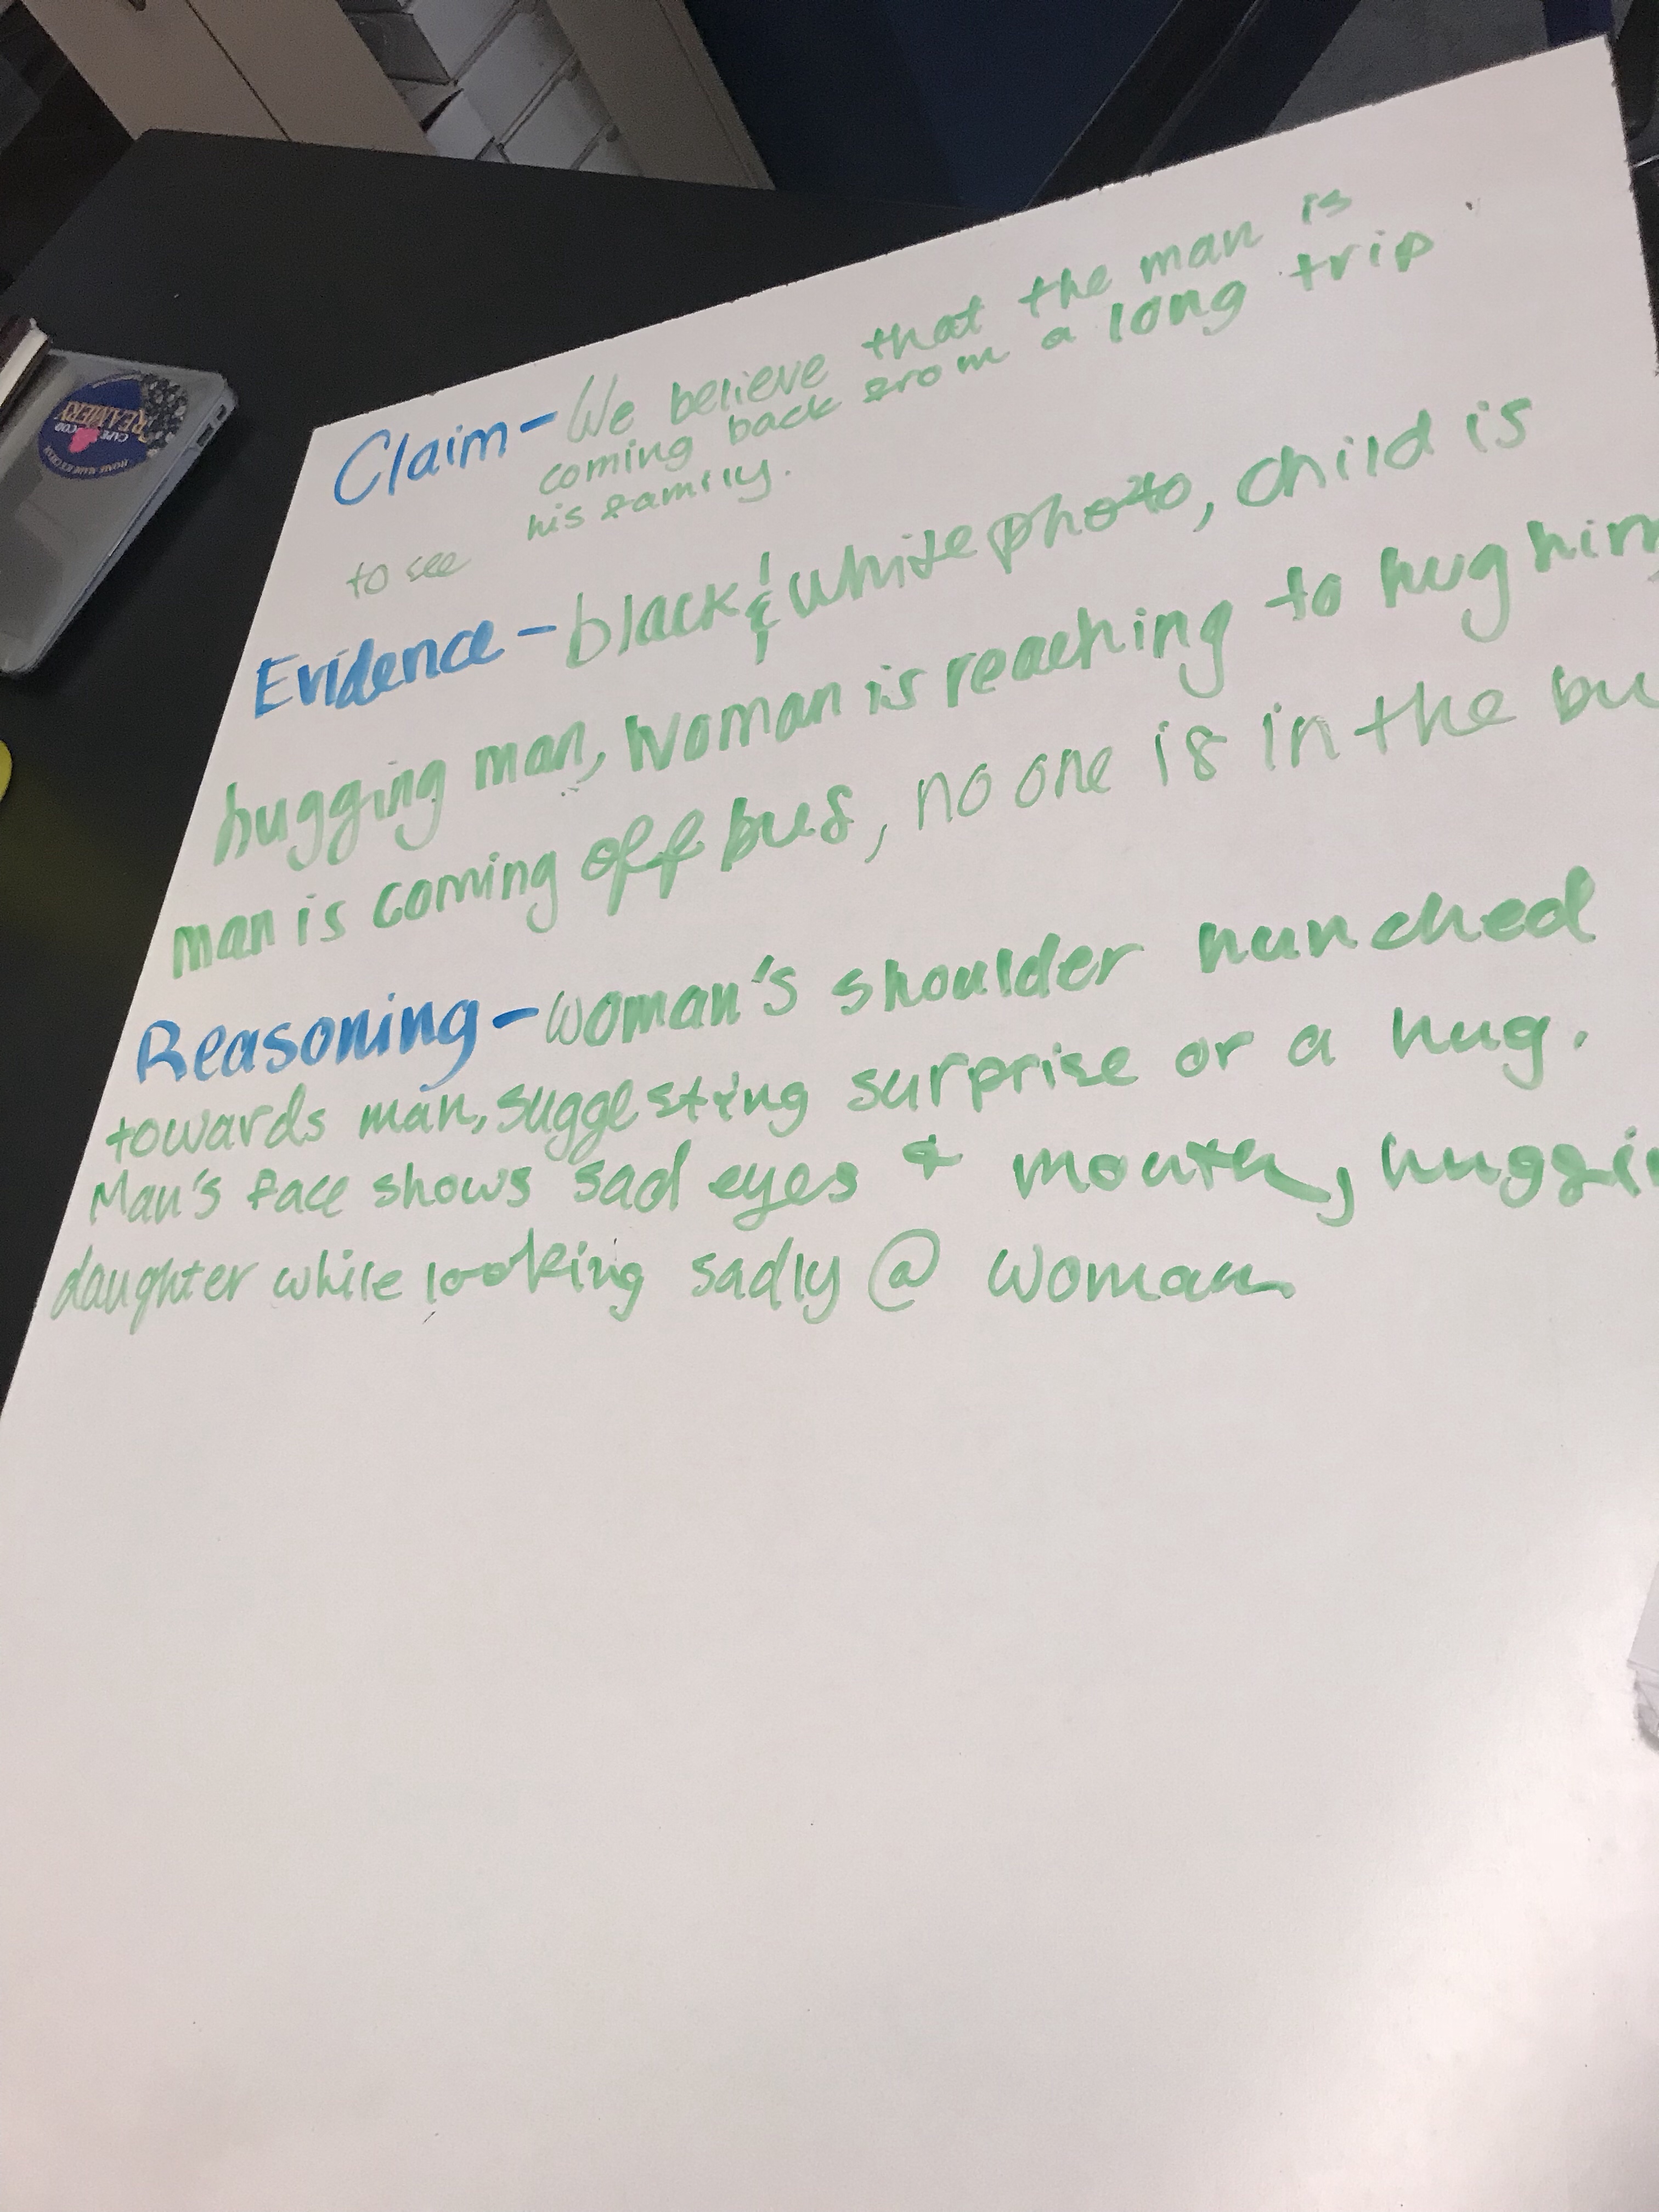 Claim - We believe that the man is
coming back from a long trip
to see his family.
Evidence - black & white photo, child is
hugging man, woman is reaching to hug him
man is coming off bus, no one is in the bu
Reasoning - woman's shoulder hunched
towards man, suggesting surprise or a hug.
Man's face shows sad eyes & mouth, huggin
daughter while looking sadly @ woman
CAPE COD
CREAMERY